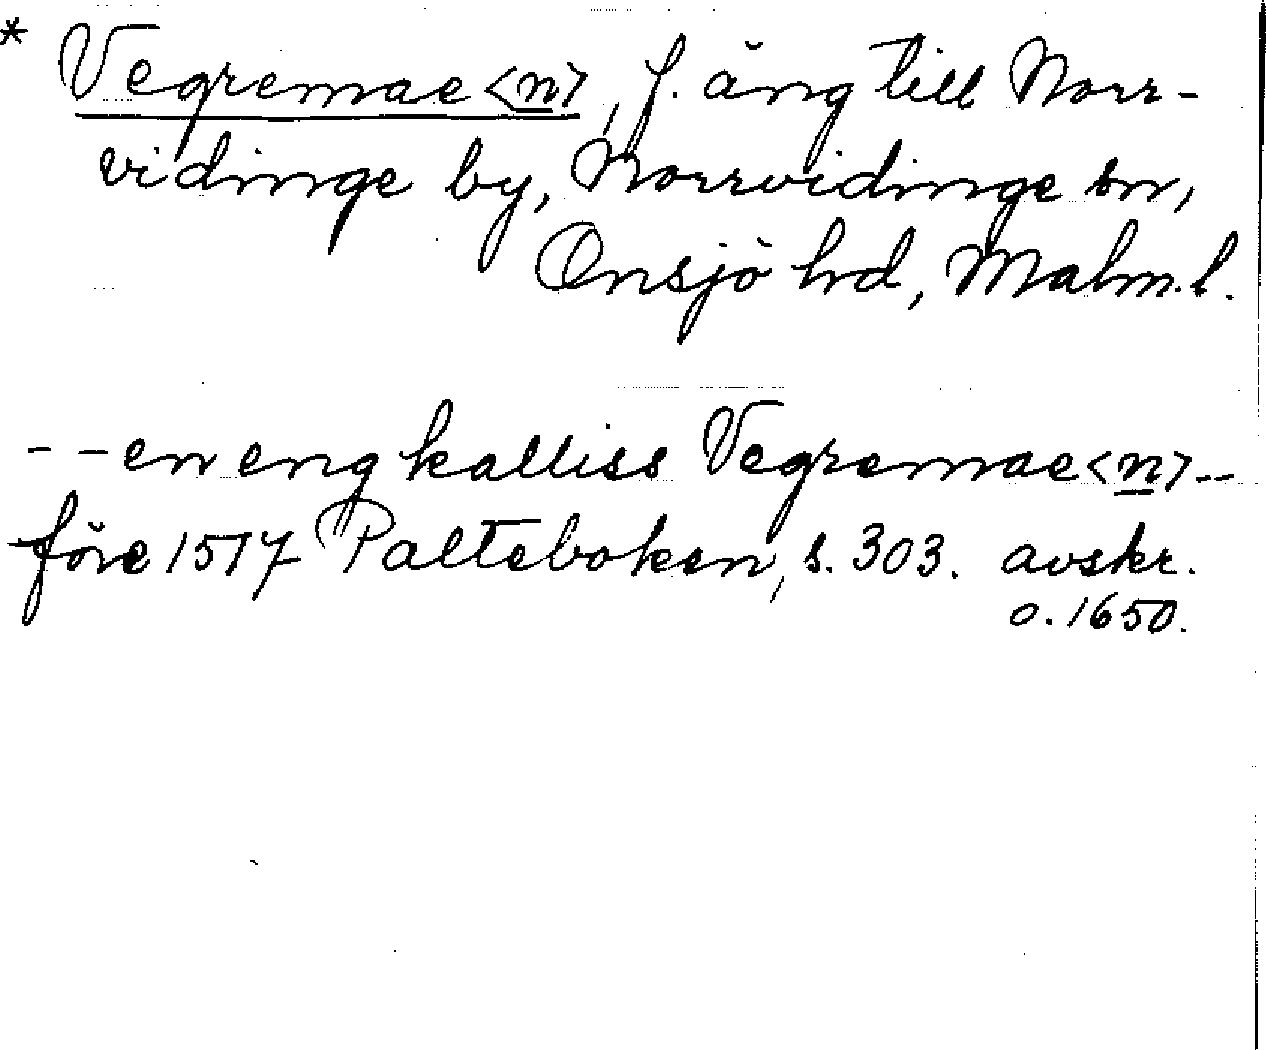 * Vegremae<n>, f. äng till Norr-
vidinge by, Norrvidinge sn,
Onsjö hd, Malm. l.
- - en eng kalliss Vegremae<n> - -
före 1517 Palteboken, s. 303. avskr.
o. 1650.